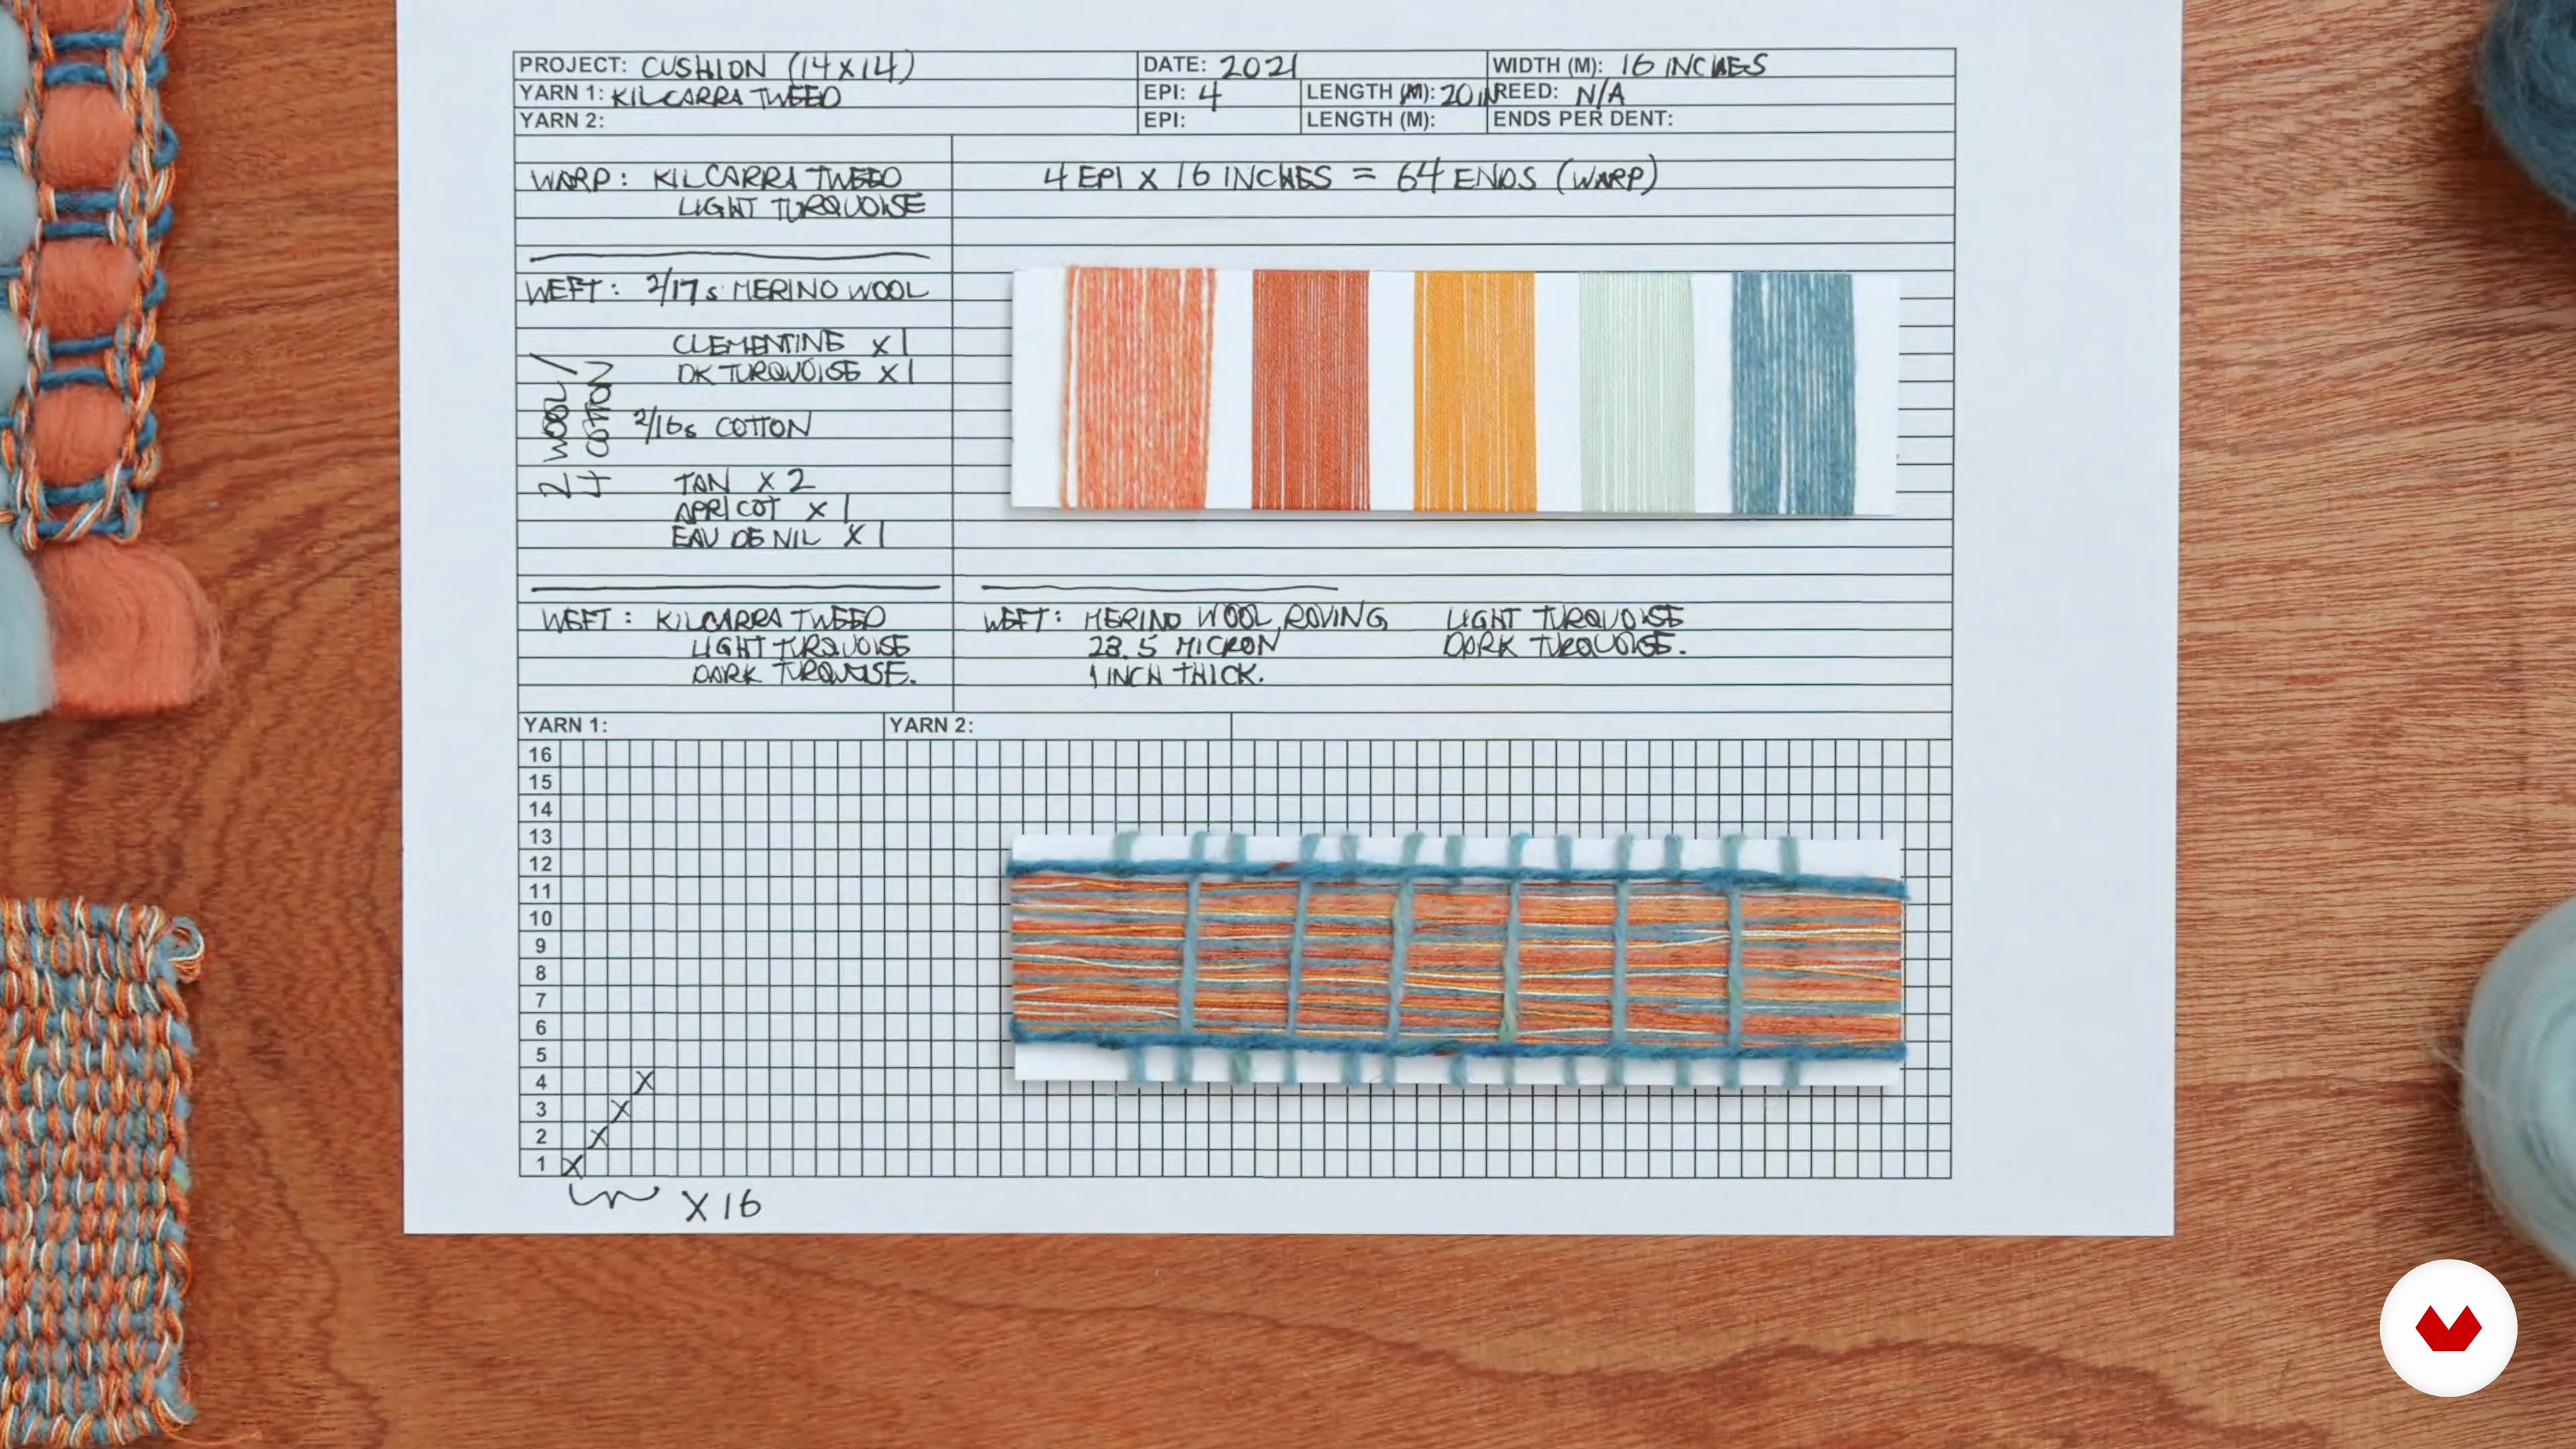 PROJECT: CUSHION (14X14) DATE: 2021 WIDTH (M): 16 INCHES
YARN 1: KILCARRA TWEED EPI: 4 LENGTH (M): 20 IN REED: N/A
YARN 2: EPI: LENGTH (M): ENDS PER DENT:
WARP: KILCARRA TWEED
LIGHT TURQUOISE
4 EPI X 16 INCHES = 64 ENDS (WARP)
WEFT: 2/17s MERINO WOOL
CLEMENTINE X 1
DK TURQUOISE X 1
2/16s COTTON
TAN X 2
APRICOT X 1
EAU DE NIL X 1
2 WOOL /
4 COTTON
WEFT: KILCARRA TWEED
LIGHT TURQUOISE
DARK TURQUOISE.
WEFT: MERINO WOOL ROVING LIGHT TURQUOISE
23.5 MICRON DARK TURQUOISE.
1 INCH THICK.
YARN 1: YARN 2:
16
15
14
13
12
11
10
9
8
7
6
5
4 X
3 X
2 X
1 X
X 16